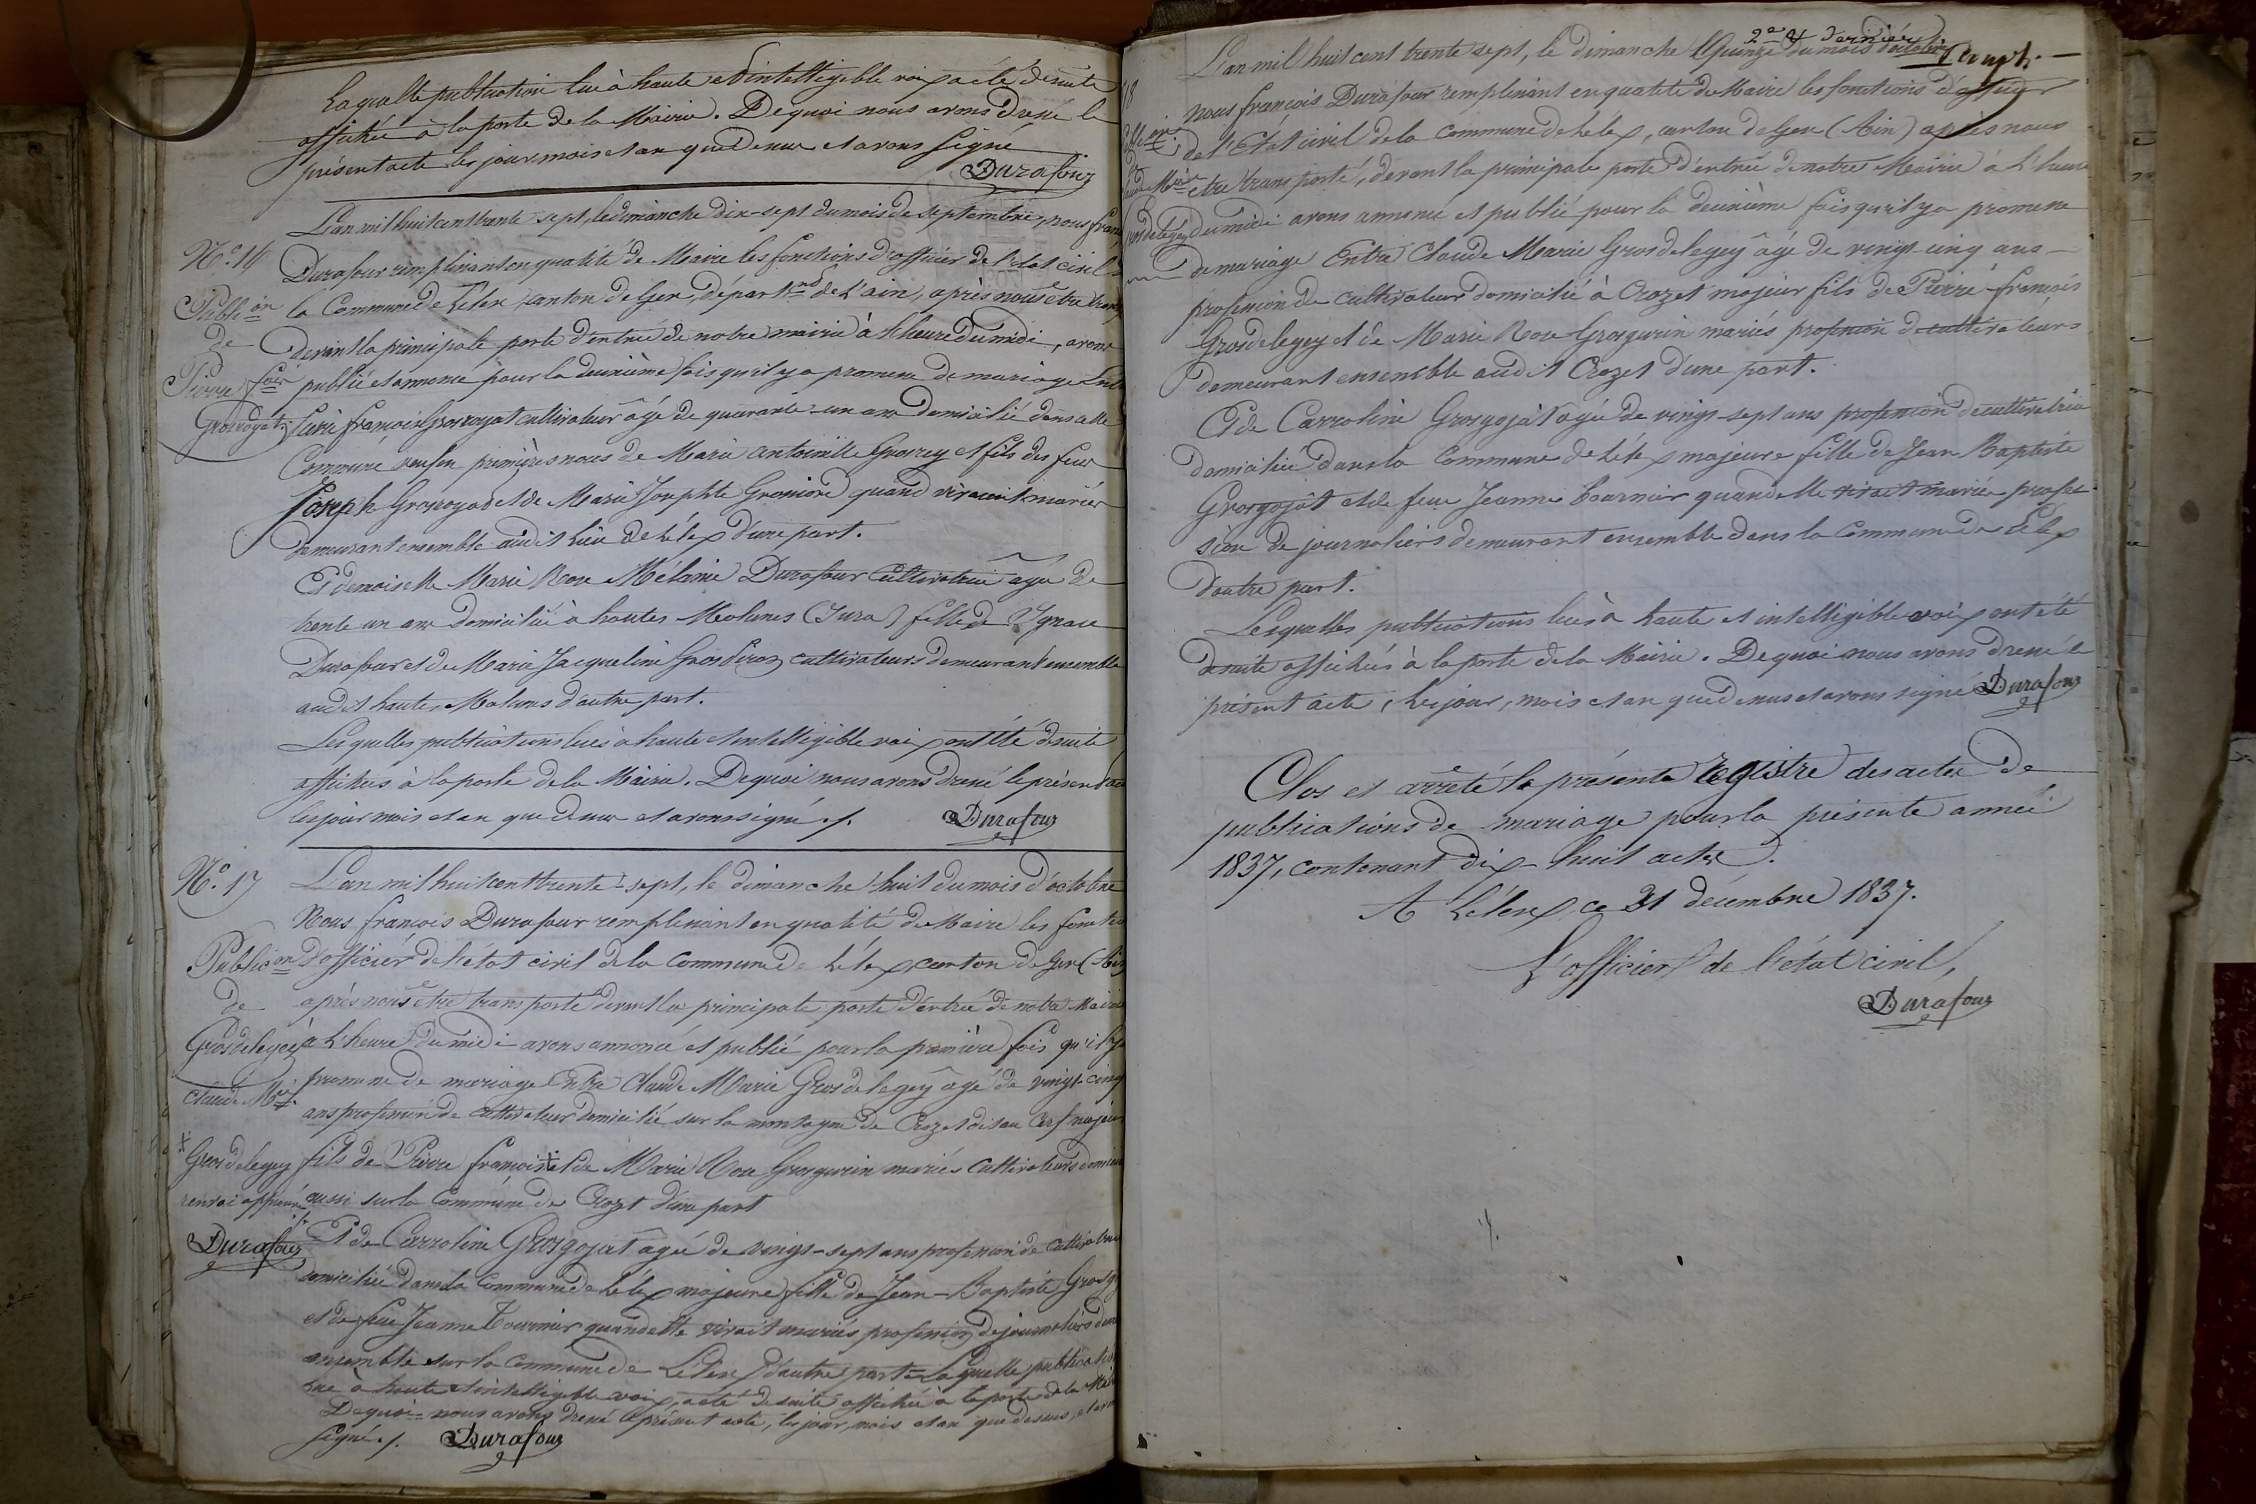 Laquelle publication lue à haute et intelligible voix a été de suite
affichée à la porte de la Mairie. De quoi nous avons dressé le
présent acte les jour mois et an que dessus et avons signé
Durafour
L'an mil huit cent trente-sept, le dimanche dix-sept du mois de septembre, nous
No. 16 Durafour remplissant en qualité de Maire les fonctions d'officier de l'état civil
Publi.on la Commune de Lélex canton de Gex, départ.nt de l'ain, après nous être
de devant la principale porte d'entrée de notre mairie à l'heure du midi, avons
Pierre f.ois publié et annoncé pour la deuxième fois qu'il y a promesse de mariage
Grosroyat. Pierre françois Grosroyat cultivateur âgé de quarante-un ans domicilié dans cette
Commune veuf en premières noces de Marie antoinette et fils des feux
Joseph Grosroyat et de Marie Josephte quand vivaient mariés
demeurant ensemble audit lieu de Lélex d'une part.
Et demoiselle Marie Rose Mélanie Durafour cultivatrice âgée de
trente un ans domiciliée à hautes Molunes (Jura) fille de Ygnace
Durafour et de Marie Jacqueline cultivateurs demeurant ensemble
audit hautes Molunes d'autre part.
Lesquelles publications lues à haute et intelligible voix ont été de suite
affichées à la porte de la Mairie. De quoi nous avons dressé le présent
les jour mois et an que dessus et avons signé ./.
Durafour
No. 17 L'an mil huit cent trente-sept, le dimanche huit du mois d'octobre
Nous françois Durafour remplissant en qualité de Maire les
Public.on d'officier de l'état civil de la Commune de Lélex canton de Gex
de après nous être transporté devant la principale porte d'entrée de notre Mairie
Grosdelegey à l'heure du midi avons annoncé et publié pour la première fois qu'il y a
Claude M.ie promesse de mariage Entre Claude Marie Grosdelegey âgé de vingt-cinq
ans profession de cultivateur domicilié sur la montagne de Crozet majeur
x Grosdelegey fils de Pierre françois x et de Marie Rose Grosgurin mariés cultivateurs
renvoi approuvé aussi sur la Commune de Crozet d'une part
Durafour Et de Carroline Grosgojat âgée de vingt-sept ans profession de
domiciliée dans la Commune de Lélex majeure fille de Jean-Baptiste
et de feue Jeanne Tournier quand elle vivait mariés profession de journaliers
ensemble sur la commune de Lélex d'autre part Laquelle
lue à haute et intelligible voix, a été de suite affichée à la porte de la
De quoi nous avons dressé le présent acte, les jour, mois et an que dessus, et
signé ./. Durafour
2.e et dernière
L'an mil huit cent trente sept, le dimanche Quinze du mois d'octobre
18 nous françois Durafour remplissant en qualité de Maire les fonctions d'officier
de l'Etat civil de la Commune de Lélex, canton de Gex (Ain) après nous
être transporté, devant la principale porte d'entrée de notre Mairie à l'heure
du midi avons annoncé et publié pour la deuxième fois qu'il y a promesse
de mariage Entre Claude Marie Grosdelegey âgé de vingt cinq ans
profession de cultivateur domicilié à Crozet majeur fils de Pierre-françois
Grosdelegey et de Marie Rose Grosgurin mariés profession de cultivateurs
demeurant ensemble audit Crozet d'une part.
Et de Carroline Grosgojat âgée de vingt-sept ans profession de cultivatrice
domiciliée dans la Commune de Lélex majeure fille de Jean Baptiste
Grosgojat et de feue Jeanne Tournier quand elle vivait mariés profes-
sion de journaliers demeurant ensemble dans la Commune de Lélex
d'autre part.
Lesquelles publications lues à haute et intelligible voix ont été
de suite affichées à la porte de la Mairie. De quoi nous avons dressé le
présent acte, les jour, mois et an que dessus et avons signé Durafour
Clos et arrêté le présente registre des actes de
publications de mariage pour la présente année
1837, contenant dix-huit actes.
A Lélex, ce 31 décembre 1837.
L'officier de l'état civil,
Durafour